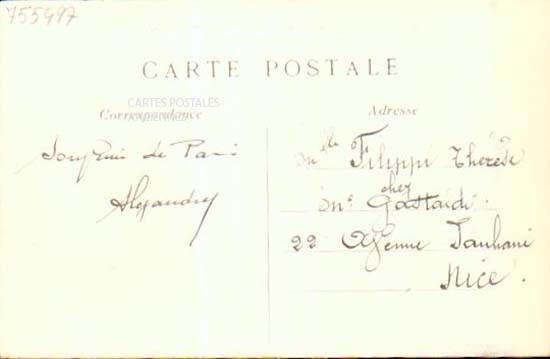 455497
CARTE POSTALE
CARTES POSTALES
ANCIENNES
Correspondance
Adresse
Souvenir de Paris
Alexandre
Mlle Filippi Thérèse
chez
Mr Gastaldi.
22 Avenue
Nice.